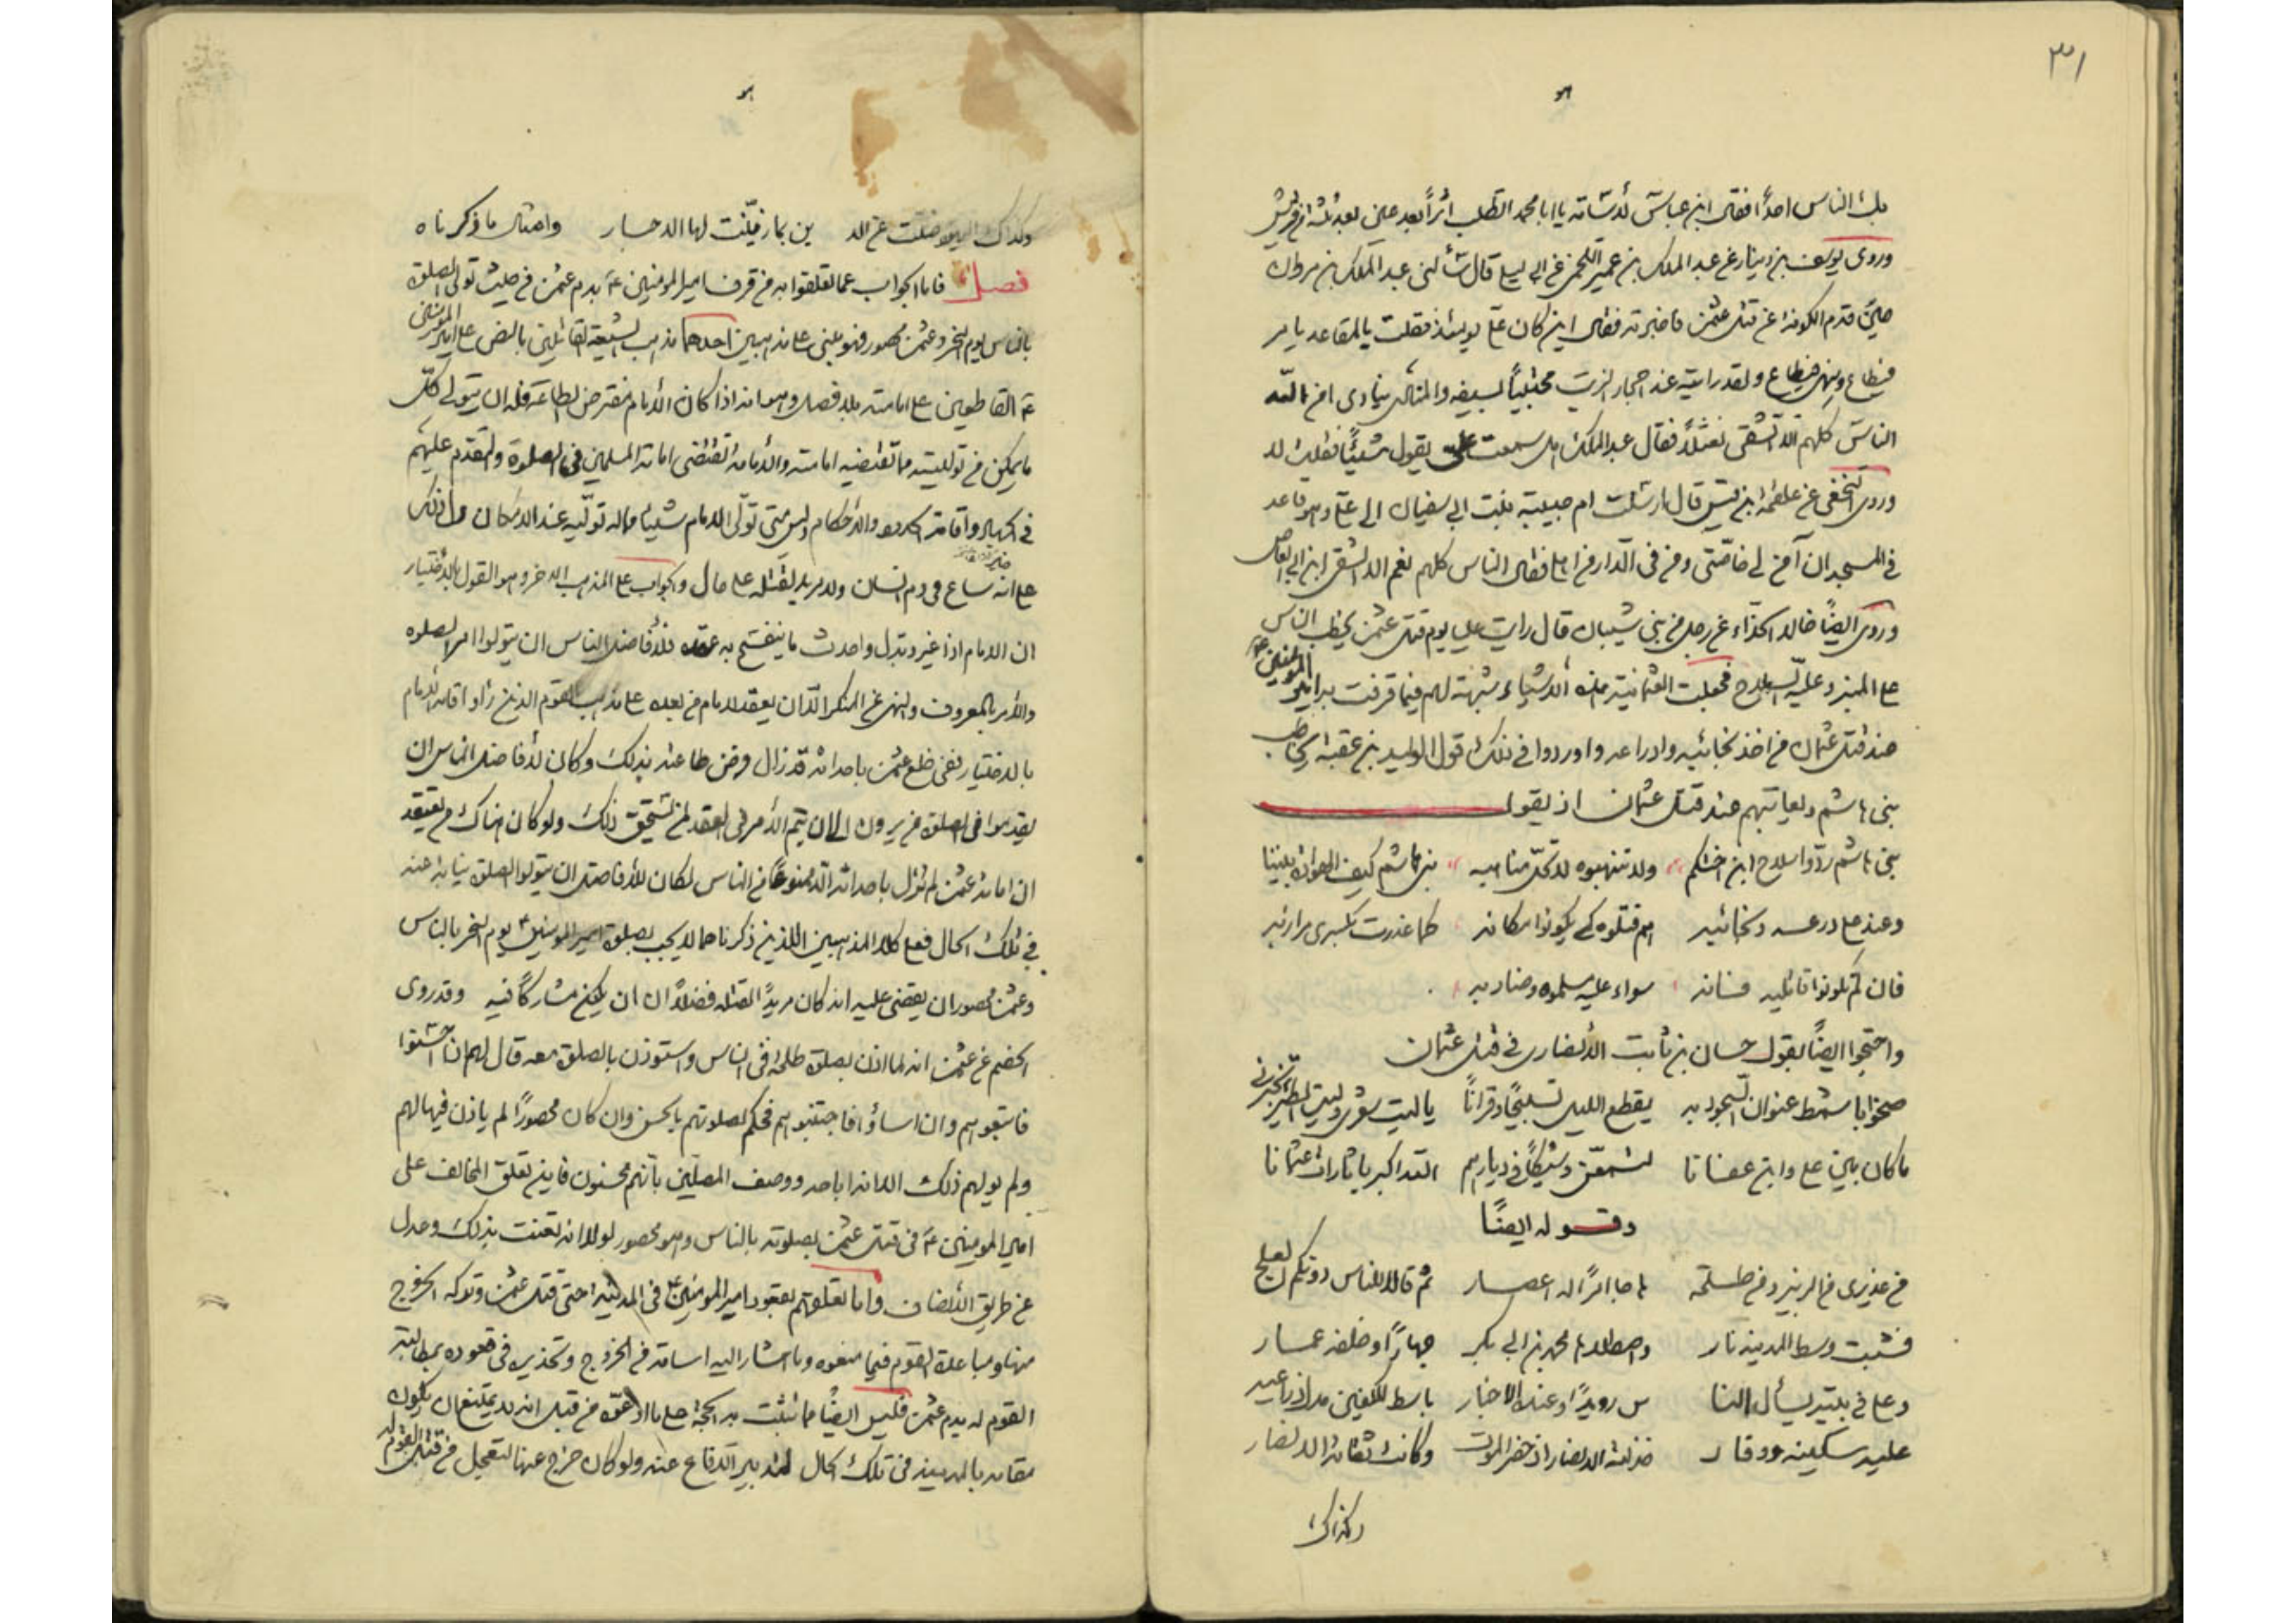 ٣١
هو
بك الناس احدًا فقال ابن عباس لا شاته يا ابا محمد اتطلب اثرًا بعد عين بعد ثلثة من قريش
وروى يوسف بن دينار عن عبد الملك بن عمير اللخمي عن ابي ليلى قال سألني عبد الملك بن مروان
حين قدم الكوفة عن قتل عثمن فاخبرته فقال اين كان علي يومئذ فقلت بالمقاعد يامر
فيطاع وينهى فيطاع ولقد رايته عند احجار الزيت محتبيًا بسيفه والمنادى ينادى امن الله
الناس كلهم الا الشقى نعثلًا فقال عبد الملك هل سمعت علي يقول شيئًا فقلت لا
وروى النخعي عن علقمة ابن قيس قال ارسلت ام حبيبة بنت ابي سفيان الى علي وهو قاعد
في المسجد ان آمن لي خاصتي ومن في الدار من اهلي فقال الناس كلهم نعم الا الشقى ابن ابي العاص
وروى ايضًا خالد الحذاء عن رجل من بني شيبان قال رايت علي يوم قتل عثمن يخطب الناس
على المنبر وعليه السلاح فجعلت العثمانية هذه الاشياء شبهة لهم فيما قرفت به امير المؤمنين ع
عند قتل عثمان من اخذ نجائبه وادراعه واوردوا في ذلك قول الوليد بن عقبة يخاطب
بني هاشم ويعاتبهم عند قتل عثمان اذ يقول
بني هاشم ردوا سلاح ابن اختكم ولا تنهبوه لا تحل مناهبه بني هاشم كيف الهوادة بيننا
وعند علي درعه ونجائبه هم قتلوه كي يكونوا مكانه كما غدرت بكسرى مرازبه
فان لم تكونوا قاتليه فانه سواء عليه مسلموه وضاربه
واحتجوا ايضًا بقول حسان بن ثابت الانصارى في قتل عثمان
ضحوا باشمط عنوان السجود به يقطع الليل تسبيحًا وقرانًا يا ليت شعرى وليت الطير تخبرني
ما كان بين علي وابن عفانا لتسمعن وشيكًا في ديارهم الله اكبر يا ثارات عثمانا
وقوله ايضًا
من عذيرى من الزبير ومن طلحة هاجا امرًا له اعصار ثم قالا للناس دونكم العلج
فشبت وسط المدينة نار واصطلاها محمد بن ابي بكر جهارًا وخلفه عمار
وعلي في بيته يسأل النا س رويدًا وعنده الاخبار باسط الكفين
عليه سكينة ووقار خذلته الانصار اذ حضر الموت وكانت ثقاته الانصار
وكذاك
هو
وكذاك اليهود ضلت عن الد ين بما زينت لها الاحبار وامثال ما ذكرناه
فصل فاما الجواب عما تعلقوا به من قرف امير المؤمنين ع بدم عثمن من حيث تولى الصلوة
بالناس يوم النحر وعثمن محصور فهو مبني على مذهبين احدهما مذهب الشيعة القائلين بالنص على امير المؤمنين
ع القاطعين على امامته بلا فصل وهو انه اذا كان الامام مفترض الطاعة فله ان يتولى كل
ما يمكن من توليته مما تقتضيه امامته والامامة تقتضي امامة المسلمين في الصلوة والتقدم عليهم
في الجهاد واقامة الحدود والاحكام وليس متى تولى الامام شيئا مما له توليه عند الامكان دل ذلك
على انه ساع في دم انسان ولا مريد لقتله على حال والجواب على المذهب الاخر وهو القول بالاختيار
ان الامام اذا غير وبدل واحدث ما ينفسخ به عقده فلافاضل الناس ان يتولوا امر الصلوة
والامر بالمعروف والنهي عن المنكر الى ان يعقد لامام من بعده على مذهب القوم الذين رأوا اقامة الامام
بالاختيار ففي خلع عثمن باحداثه قد زال فرض طاعته بذلك وكان لافاضل الناس ان
يقدموا في الصلوة من يرون الى ان يتم الامر في العقد لمن يستحق ذلك ولو كان هناك من يعتقد
ان امامة عثمن لم تزل باحداثه الا ممنوعًا من الناس لكان للافاضل ان يتولوا الصلوة نيابة عنه
في تلك الحال فعلى كلا المذهبين اللذين ذكرناهما لا يجب بصلوة امير المؤمنين ع يوم النحر بالناس
وعثمن محصور ان يقضى عليه انه كان مريدًا لقتله فضلًا ان يكون مشاركًا فيه وقد روى
الخصم عن عثمن انه لما اذن بصلوة طلحة في الناس واستوذن بالصلوة معه قال لهم ان احسنوا
فاتبعوهم وان اساؤا فاجتنبوهم فحكم لصلوتهم بالحسن وان كان محصورًا لم ياذن فيها لهم
ولم يولهم ذلك الا انه اباحه ووصف المصلين بانهم محسنون فاين تعلق المخالف على
امير المؤمنين ع في قتل عثمن بصلوته بالناس وهو محصور لولا انه تعنت بذلك وعدل
عن طريق الانصاف واما تعلقهم بقعود امير المؤمنين ع في المدينة حتى قتل عثمن وتركه الخروج
منها ومباعدة القوم فيما صنعوه وما اشار اليه اسامة من الخروج وتحذيره في قعوده بمطالبة
القوم له بدم عثمن فليس ايضًا مما يثبت به الحجة على ما ادعوه من قبل انه لا يمتنع ان يكون
مقامه بالمدينة في تلك الحال لتدبير الدفاع عنه ولو كان خرج عنها لتعجل من قتل القوم له